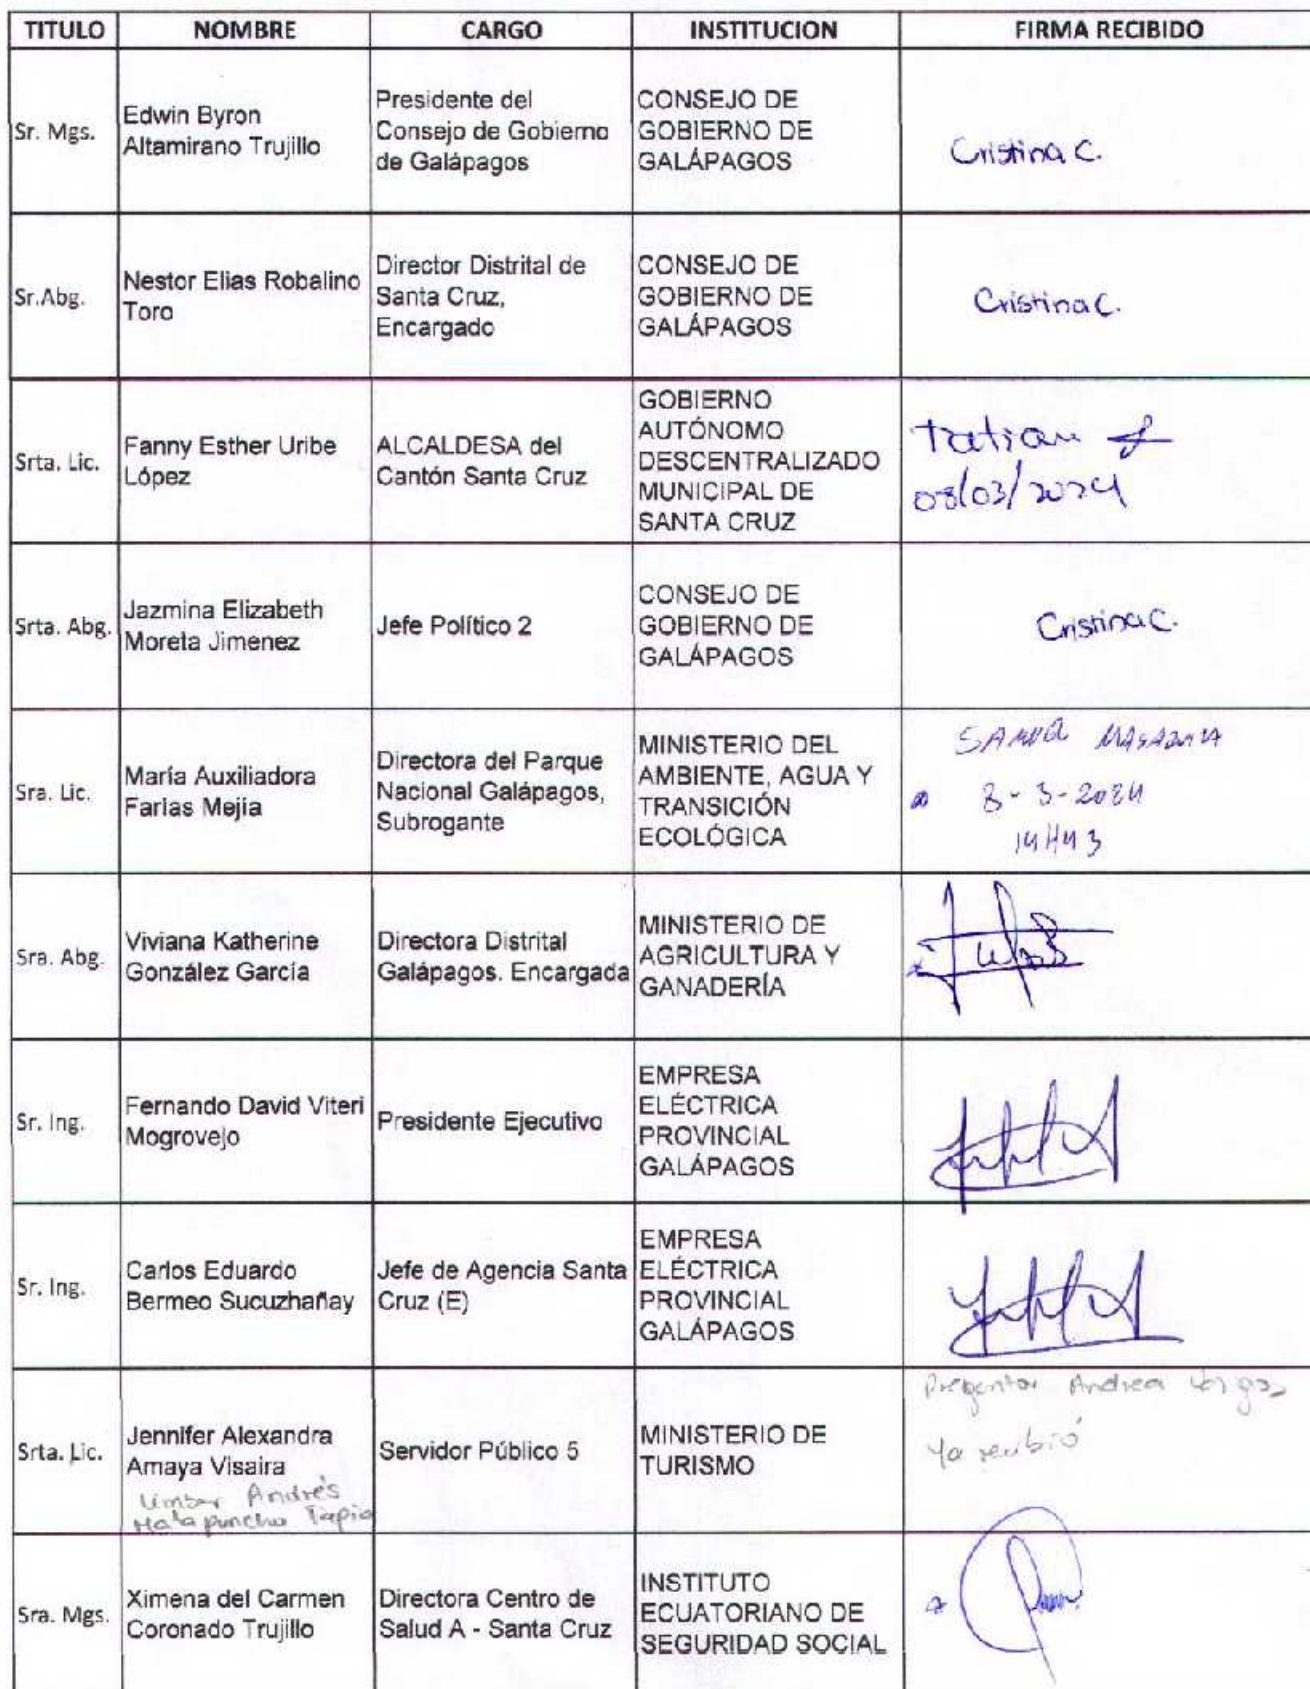 TITULO NOMBRE CARGO INSTITUCION FIRMA RECIBIDO
Sr. Mgs.
Edwin Byron
Altamirano Trujillo
Presidente del
Consejo de Gobierno
de Galápagos
CONSEJO DE
GOBIERNO DE
GALÁPAGOS
Cristina C.
Sr.Abg.
Nestor Elias Robalino
Toro
Director Distrital de
Santa Cruz,
Encargado
CONSEJO DE
GOBIERNO DE
GALÁPAGOS
Cristina C.
Srta. Lic.
Fanny Esther Uribe
López
ALCALDESA del
Cantón Santa Cruz
GOBIERNO
AUTÓNOMO
DESCENTRALIZADO
MUNICIPAL DE
SANTA CRUZ
08/03/2024
Srta. Abg.
Jazmina Elizabeth
Moreta Jimenez
Jefe Político 2
CONSEJO DE
GOBIERNO DE
GALÁPAGOS
Cristina C.
Sra. Lic.
María Auxiliadora
Farias Mejía
Directora del Parque
Nacional Galápagos,
Subrogante
MINISTERIO DEL
AMBIENTE, AGUA Y
TRANSICIÓN
ECOLÓGICA
8-3-2024
14H43
Sra. Abg.
Viviana Katherine
González García
Directora Distrital
Galápagos. Encargada
MINISTERIO DE
AGRICULTURA Y
GANADERÍA
Sr. Ing.
Fernando David Viteri
Mogrovejo
Presidente Ejecutivo
EMPRESA
ELÉCTRICA
PROVINCIAL
GALÁPAGOS
Sr. Ing.
Carlos Eduardo
Bermeo Sucuzhañay
Jefe de Agencia Santa
Cruz (E)
EMPRESA
ELÉCTRICA
PROVINCIAL
GALÁPAGOS
Srta. Lic.
Jennifer Alexandra
Amaya Visaira
Andrés
Tapia
Servidor Público 5
MINISTERIO DE
TURISMO
Preguntar Andrea
Ya recibió
Sra. Mgs.
Ximena del Carmen
Coronado Trujillo
Directora Centro de
Salud A - Santa Cruz
INSTITUTO
ECUATORIANO DE
SEGURIDAD SOCIAL